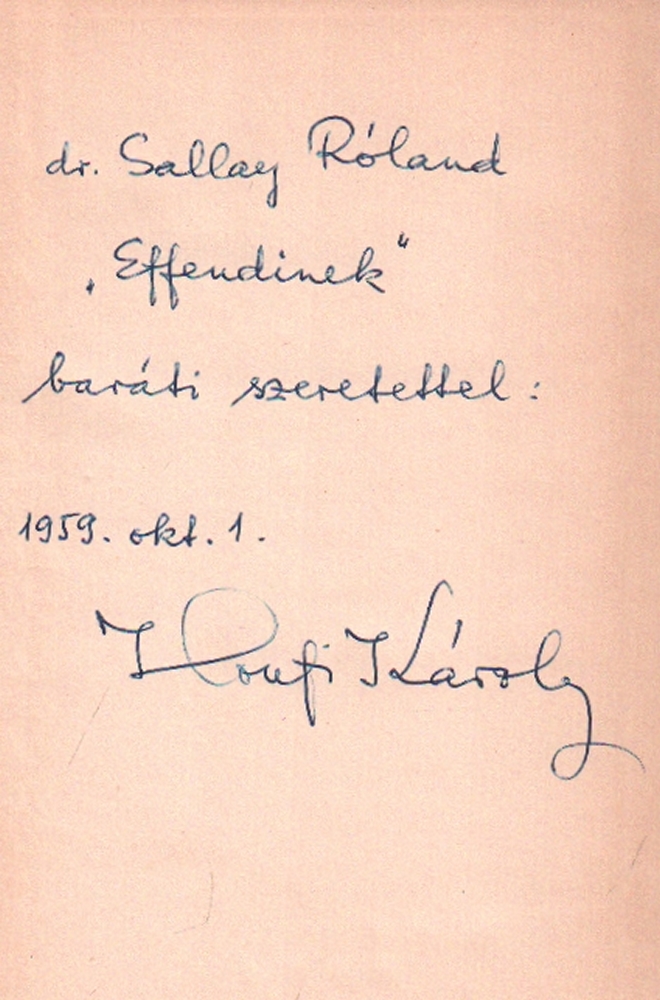 dr. Sallay Róland
„Effendinek"
baráti szeretettel:
1959. okt. 1.
Honfi Károly